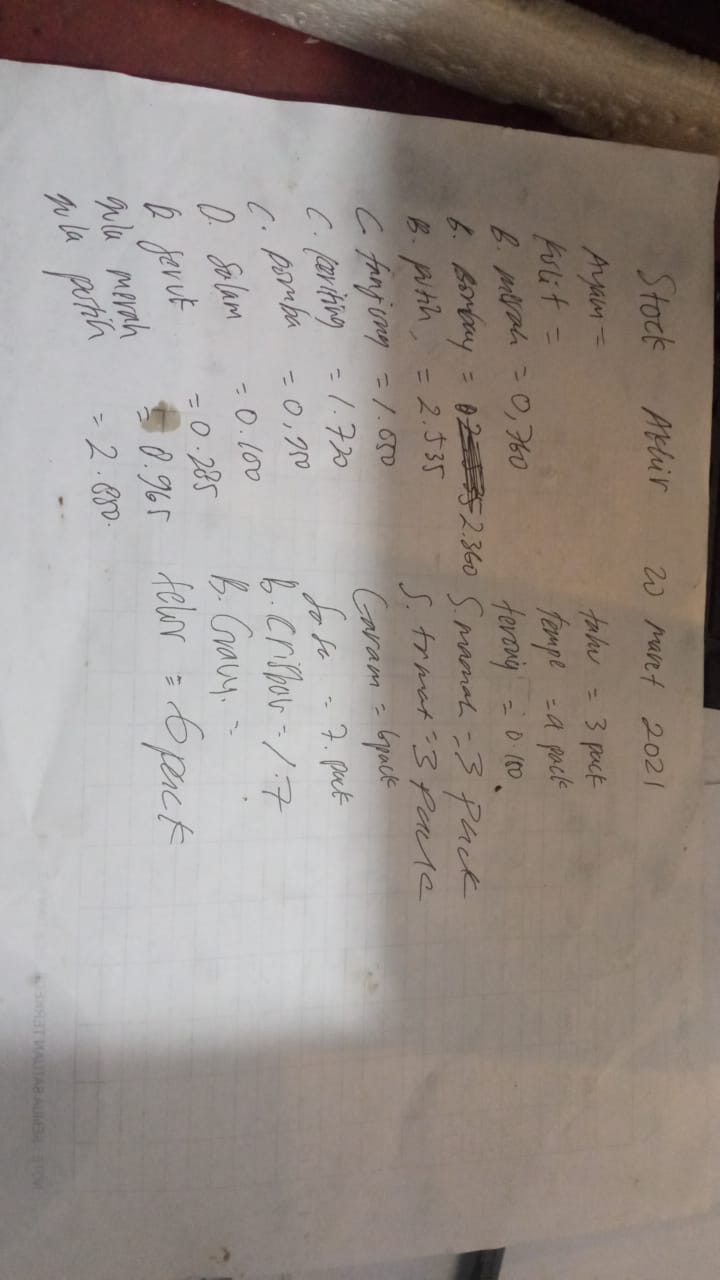 Stock Akhir 20 maret 2021
Ayam =
kulit =
B. merah = 0,760
B. Bombay = 2.360
B. putih = 2.535
C. tanjung = 1.050
C. keriting = 1.720
C. Domba = 0,950
D. Salam = 0.100
D. Jeruk = 0.285
gula merah = 0.965
gula putih = 2.880.
tahu = 3 pack
Tempe = 4 pack
terong = 0.100
S. mamah = 3 pack
S. tomat = 3 pack
Garam = 6 pack
Sasa = 7. pack
B. Crispy = 1.7
B. Gravy. =
telor = 6 pack